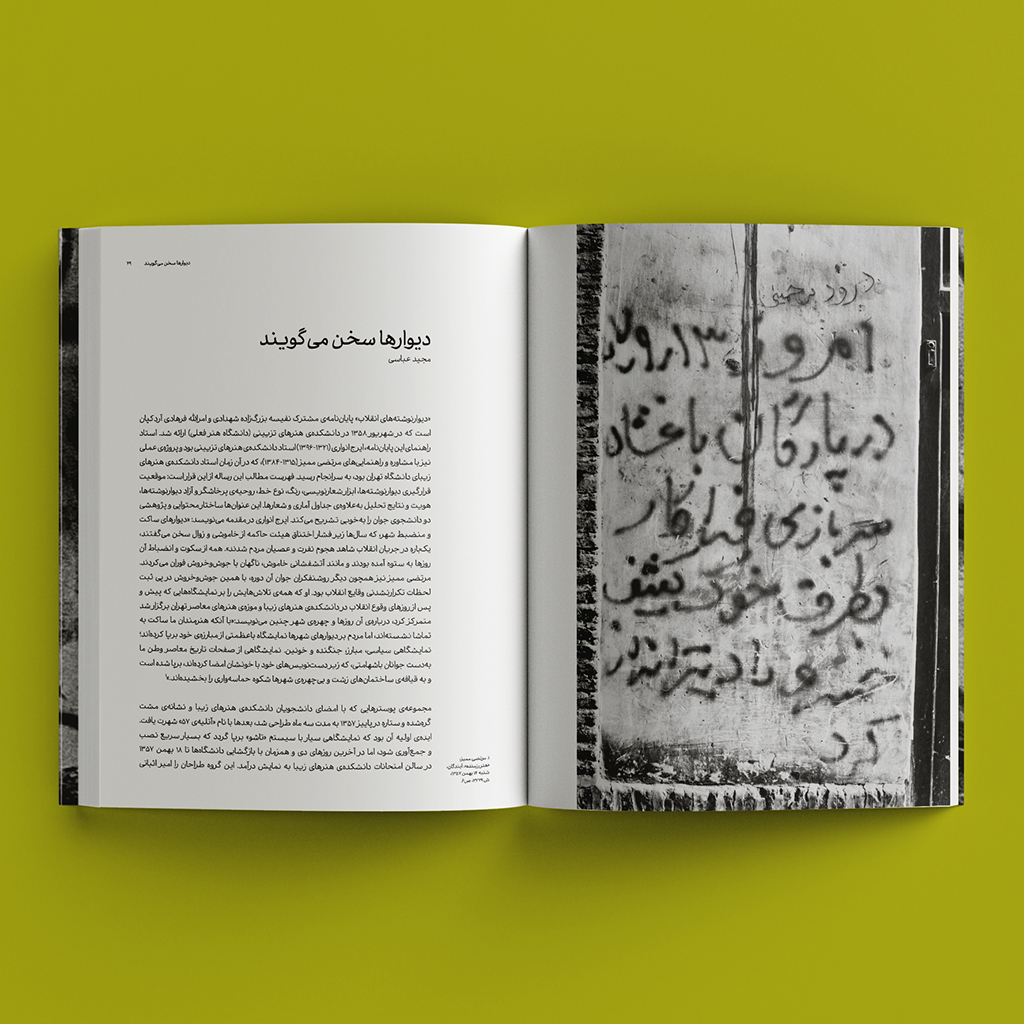 دیوارها سخن می‌گویند
۲۹
دیوارها سخن می‌گویند
مجید عباسی
«دیوارنوشته‌های انقلاب» پایان‌نامه‌ی مشترک نفیسه بزرگ‌زاده شهدادی و امرالله فرهادی آردکپان
است که در شهریور ۱۳۵۸ در دانشکده‌ی هنرهای تزیینی (دانشگاه هنر فعلی) ارائه شد. استاد
راهنمای این پایان‌نامه، ایرج انواری (۱۳۲۱-۱۳۹۶) استاد دانشکده‌ی هنرهای تزیینی بود و پروژه‌ی عملی
نیز با مشاوره و راهنمایی‌های مرتضی ممیز (۱۳۱۵-۱۳۸۴)، که در آن زمان استاد دانشکده‌ی هنرهای
زیبای دانشگاه تهران بود، به سرانجام رسید. فهرست مطالب این رساله از این قرار است: موقعیت
قرارگیری دیوارنوشته‌ها، ابزار شعارنویسی، رنگ، نوع خط، روحیه‌ی پرخاشگر و آزاد دیوارنوشته‌ها،
هویت و نتایج تحلیل به‌علاوه‌ی جداول آماری و شعارها. این عنوان‌ها ساختار محتوایی و پژوهشی
دو دانشجوی جوان را به‌خوبی تشریح می‌کند. ایرج انواری در مقدمه می‌نویسد: «دیوارهای ساکت
و منضبط شهر، که سال‌ها زیر فشار اختناق هیئت حاکمه از خاموشی و زوال سخن می‌گفتند،
یکباره در جریان انقلاب شاهد هجوم نفرت و عصیان مردم شدند». همه از سکوت و انضباط آن
روزها به ستوه آمده بودند و مانند آتشفشانی خاموش، ناگهان با جوش‌وخروش فوران می‌کردند.
مرتضی ممیز نیز همچون دیگر روشنفکران جوان آن دوره، با همین جوش‌وخروش در پی ثبت
لحظات تکرارنشدنی وقایع انقلاب بود. او که همه‌ی تلاش‌هایش را بر نمایشگاه‌هایی که پیش و
پس از روزهای وقوع انقلاب در دانشکده‌ی هنرهای زیبا و موزه‌ی هنرهای معاصر تهران برگزار شد
متمرکز کرد، درباره‌ی آن روزها و چهره‌ی شهر چنین می‌نویسد: «با آنکه هنرمندان ما ساکت به
تماشا نشسته‌اند، اما مردم بر دیوارهای شهرها نمایشگاه باعظمتی از مبارزه‌ی خود برپا کرده‌اند؛
نمایشگاهی سیاسی، مبارز، جنگنده و خونین. نمایشگاهی از صفحات تاریخ معاصر وطن ما
به‌دست جوانان باشهامتی، که زیر دست‌نویس‌های خود با خونشان امضا کرده‌اند، برپا شده است
و به قیافه‌ی ساختمان‌های زشت و بی‌چهره‌ی شهرها شکوه حماسه‌واری را بخشیده‌اند.»۱
مجموعه‌ی پوسترهایی که با امضای دانشجویان دانشکده‌ی هنرهای زیبا و نشانه‌ی مشت
گره‌شده و ستاره در پاییز ۱۳۵۷ به مدت سه ماه طراحی شد، بعدها با نام «آتلیه‌ی ۵۷» شهرت یافت.
ایده‌ی اولیه آن بود که نمایشگاهی سیار با سیستم «تاشو» برپا گردد که بسیار سریع نصب
و جمع‌آوری شود، اما در آخرین روزهای دی و همزمان با بازگشایی دانشگاه‌ها تا ۱۸ بهمن ۱۳۵۷
در سالن امتحانات دانشکده‌ی هنرهای زیبا به نمایش درآمد. این گروه طراحان را امیر اثباتی
۱. مرتضی ممیز،
«هنر رزمنده»، آیندگان،
شنبه ۱۴ بهمن ۱۳۵۷،
درود بر خمینی
امروز ۱۳
در پادگان باغشاه
سربازی فداکار
بطرف خود
کرد